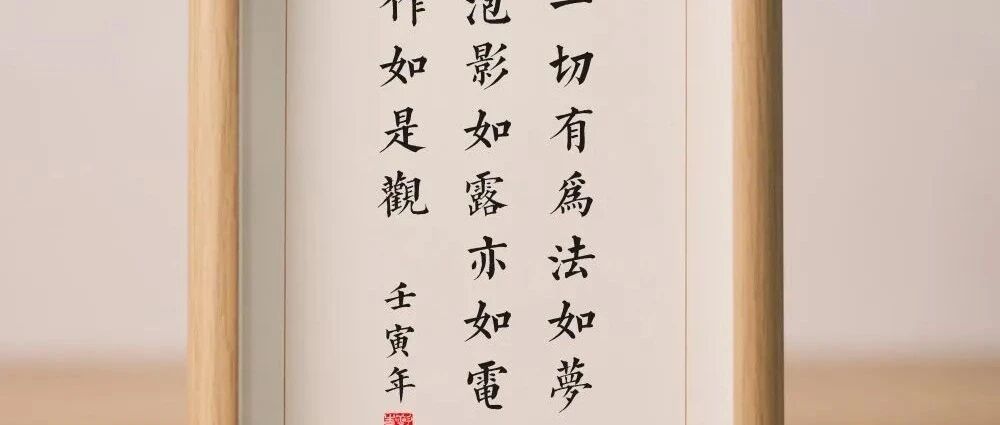 一切有爲法如夢
泡影如露亦如電
作如是觀
壬寅年